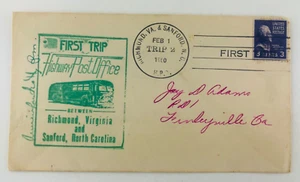 FIRST TRIP
Highway Post Office
BETWEEN
Richmond, Virginia
and
Sanford, North Carolina
RICHMOND, VA. & SANFORD, N.C.
FEB 1
TRIP 2
H.P.O.
FIRST
3
Jay D Adams
RD1
Finleyville Pa